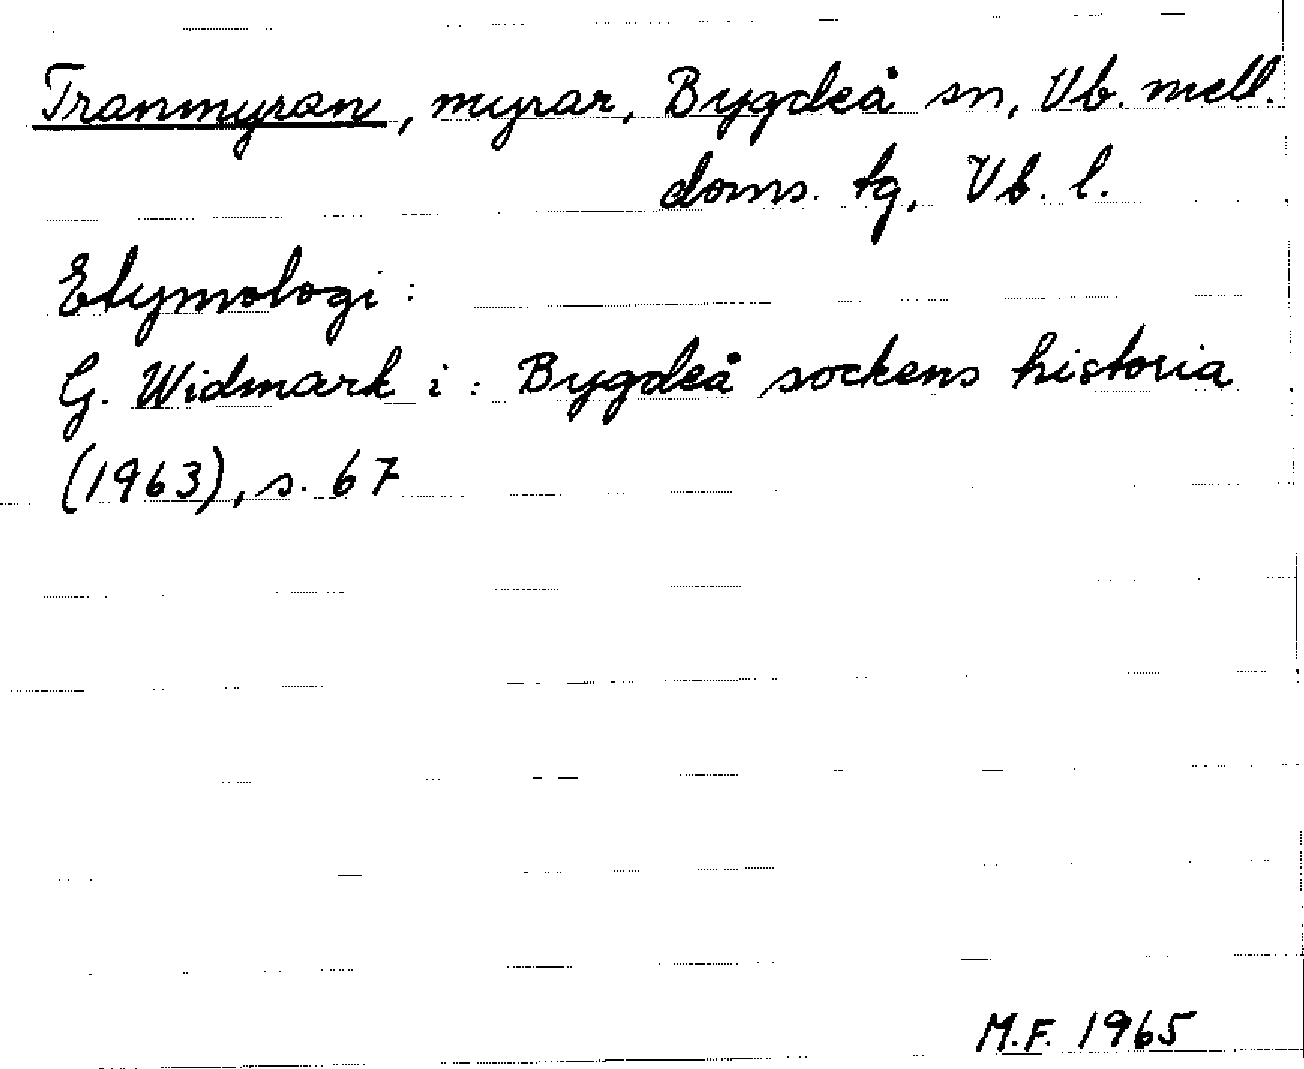 Tranmyran, myrar, Bygdeå sn, Vb. mell.
doms. tg, Vb. l.
Etymologi:
G. Widmark i: Bygdeå sockens historia
(1963), s. 67
M.F. 1965